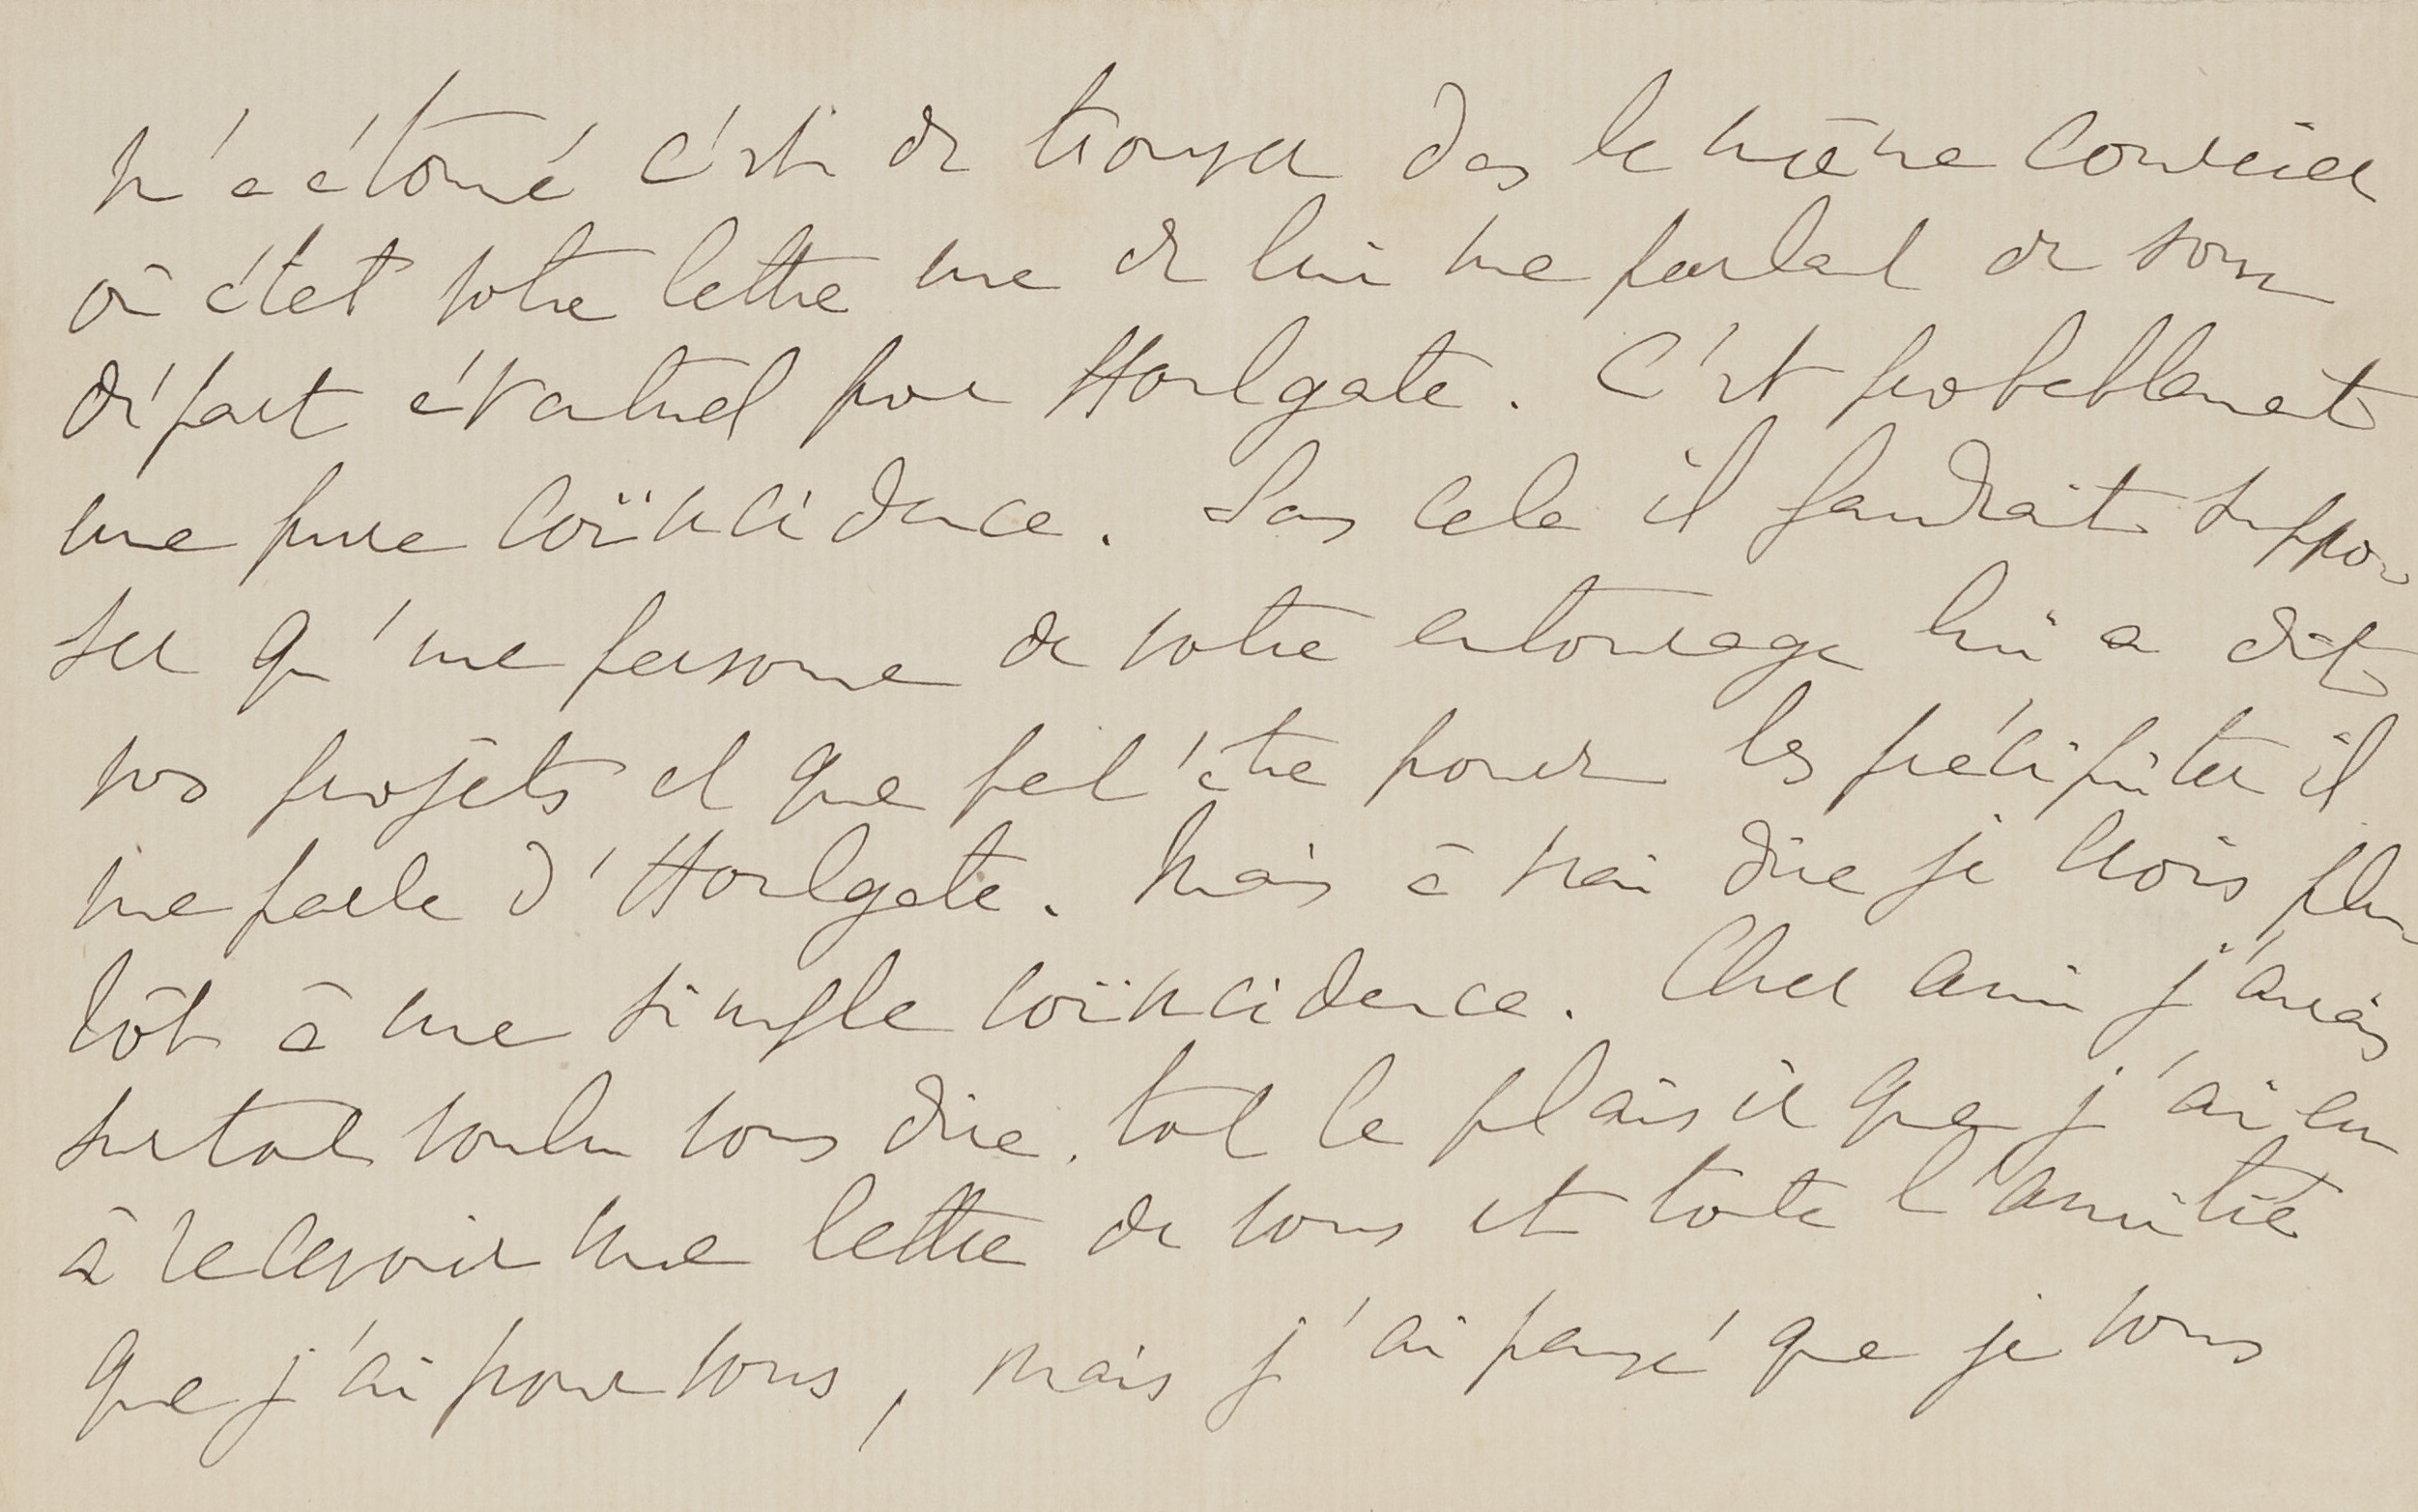 m'a étonné c'est de trouver dans le même courrier
où était votre lettre une de lui me parlant de son
départ éventuel pour Houlgate. C'est probablement
une pure coïncidence. Sans cela il faudrait suppo
ser qu'une personne de votre entourage lui a dit
vos projets et que peut'être pour les précipiter il
me parle d'Houlgate. Mais à vrai dire je crois plu
tôt à une simple coïncidence. Cher ami j'aurais
surtout voulu vous dire tout le plaisir que j'ai eu
à recevoir une lettre de vous et toute l'amitié
que j'ai pour vous, mais j'ai pensé que je vous